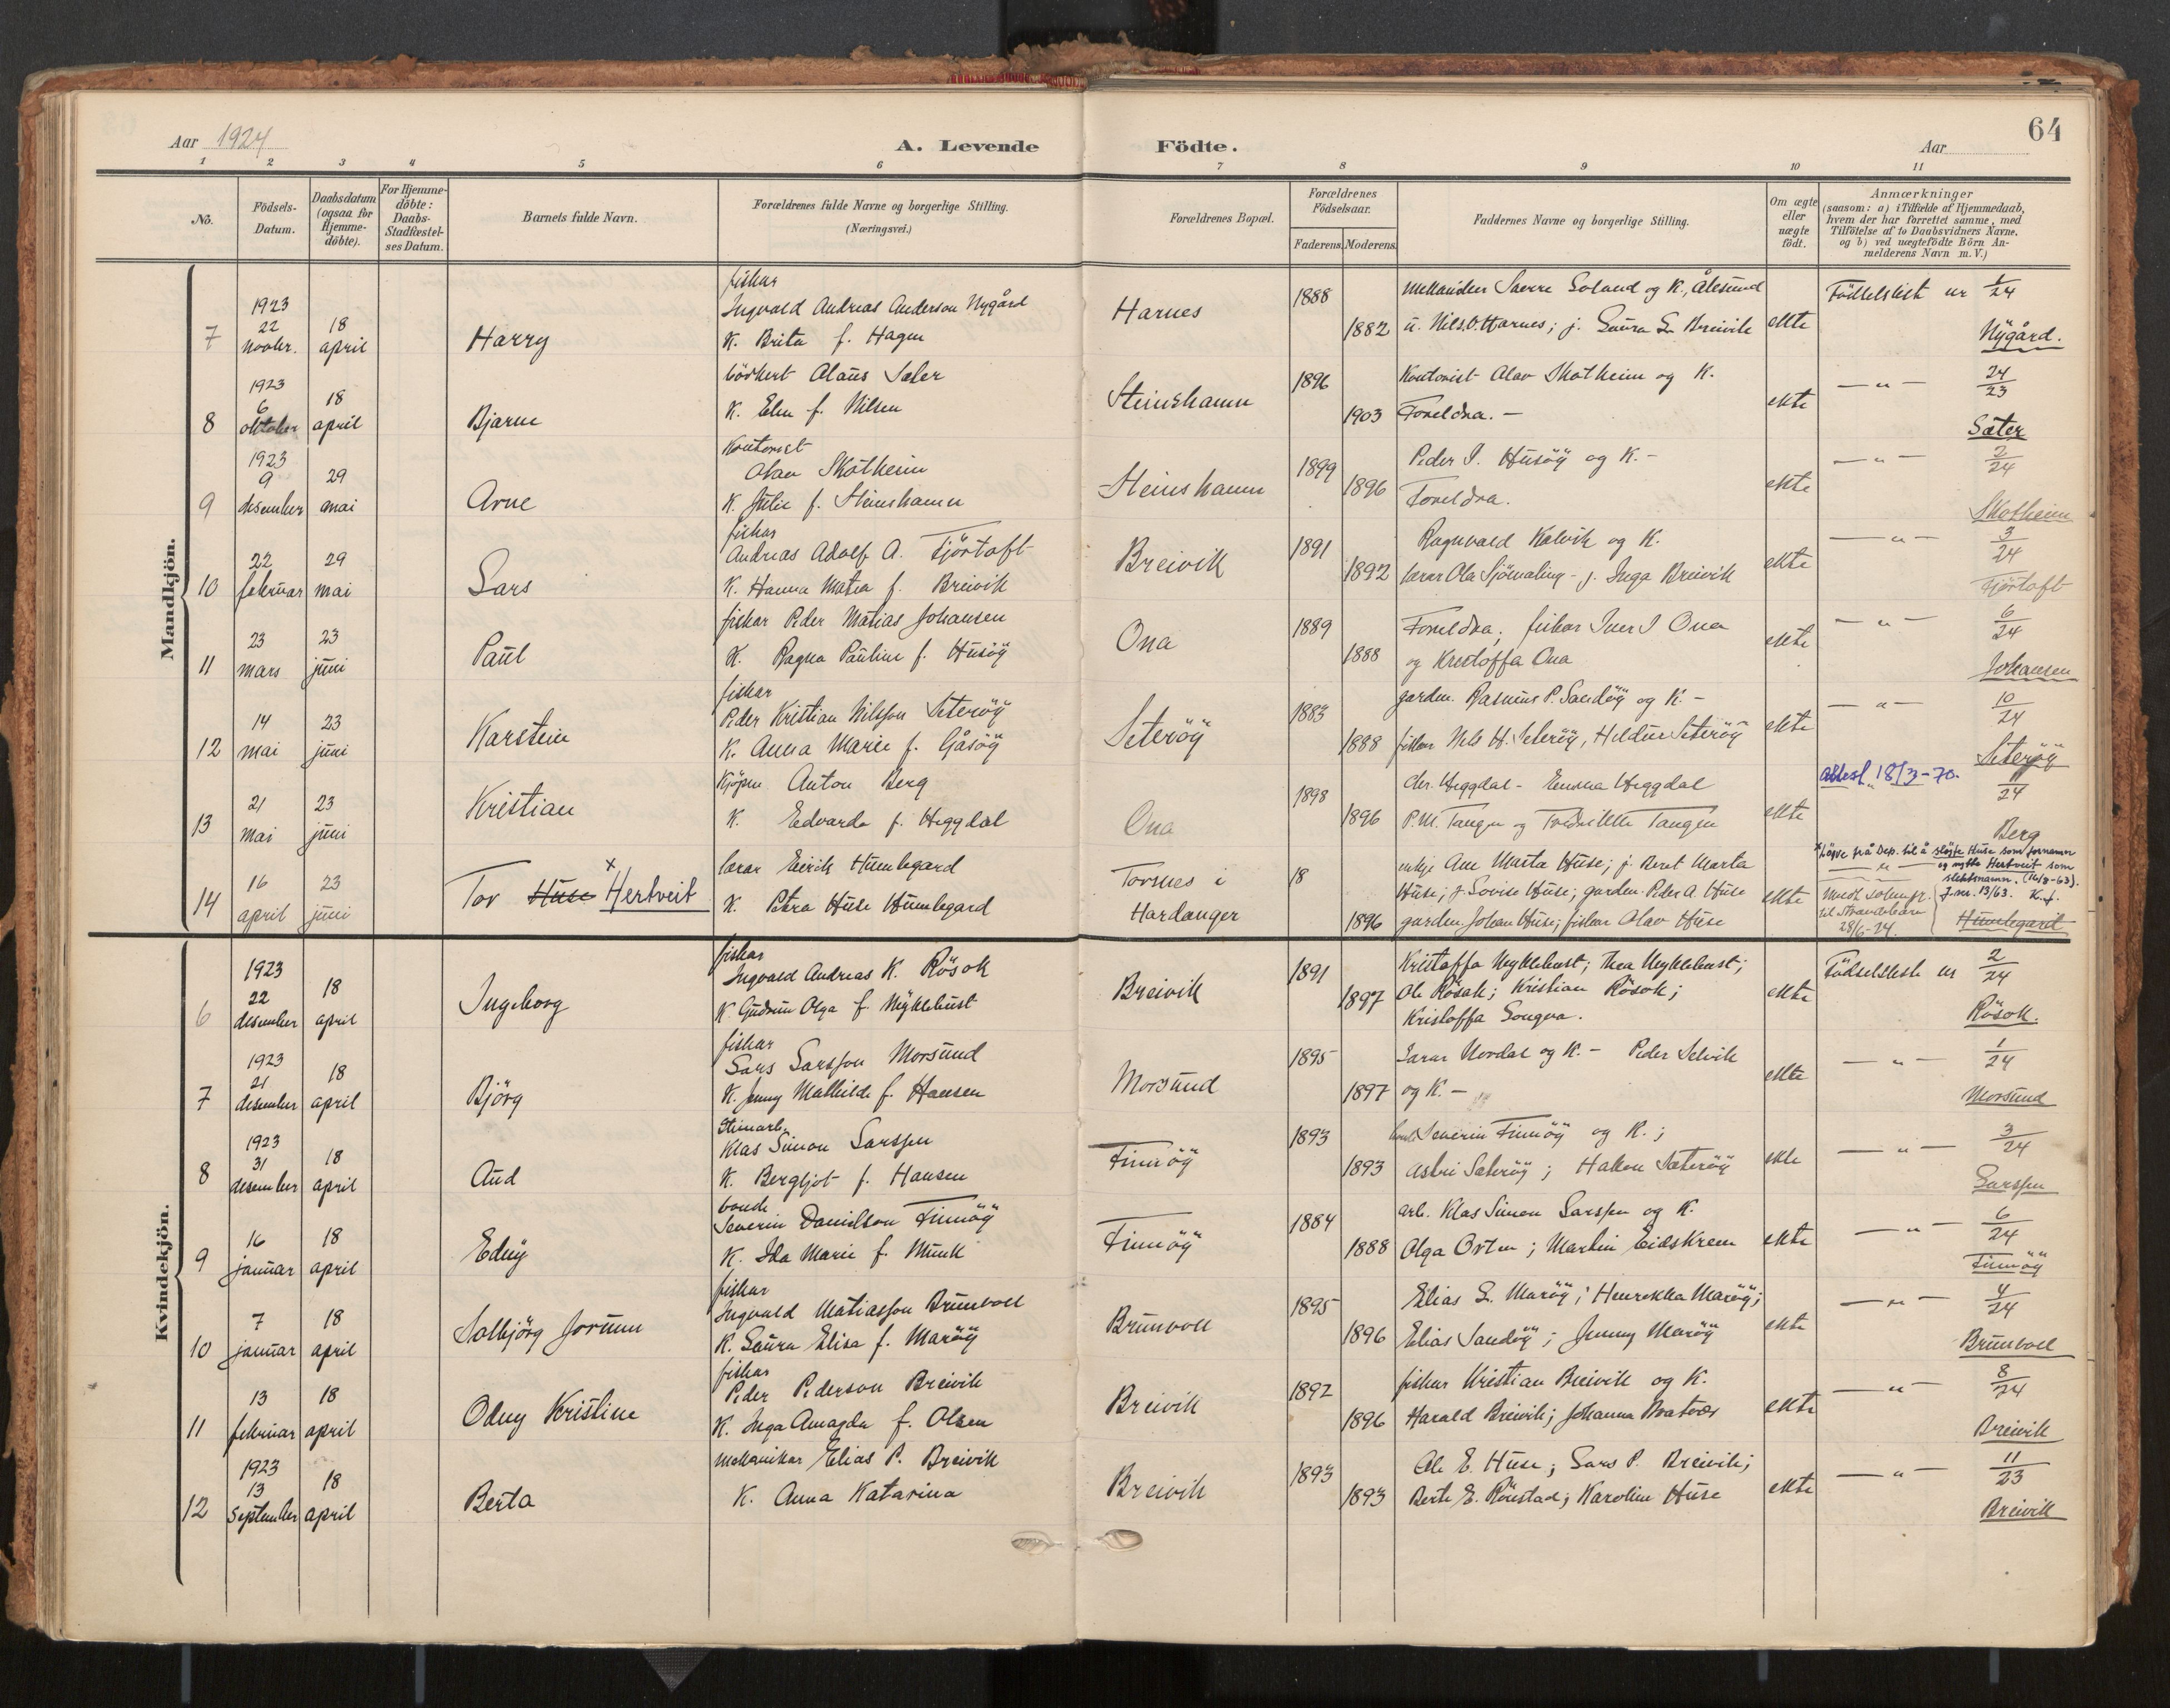 Aar 1924
A. Levende Födte.
Aar
64
1 2 3 4 5 6 7 8 9 10 11
Nö.
Födsels-
Datum.
Daabsdatum
(ogsaa for
Hjemme-
döbte).
For Hjemme-
döbte:
Daabs-
Stadfæstel-
ses Datum.
Barnets fulde Navn.
Forældrenes fulde Navne og borgerlige Stilling.
(Næringsvei.)
Forældrenes Bopæl.
Forældrenes
Födselsaar.
Faderens. Moderens.
Faddernes Navne og borgerlige Stilling.
Om ægte
eller
uægte
födt.
Anmærkninger
(saasom: a) i Tilfælde af Hjemmedaab,
hvem der har forrettet samme, med
Tilföielse af to Daabsvidners Navne.
og b) ved uægtefödte Börn An-
melderens Navn m. V.)
Mandkjön.
7
1923
22
novbr.
18
april
Harry
fiskar
Ingvald Andreas Anderson Nygård
K. Brita f. Hagen
Harnes
1888
1882
Sverre Soland og K., Ålesund
u. Nils O. Harnes; j. Laura L. Breivik
ekte
Födselslist nr 1/24
Nygård.
8
1923
6
oktober
18
april
Bjarne
Olaus Sæter
K. Elen f. Nilsen
Steinshamn
1896
1903
Kontorist Olav Skotheim og K.
Foreldra. —
ekte
— " — 24/23
Sæter
9
1923
9
desember
29
mai
Arne
Kontorist
Olav Skotheim
K. Julie f. Steinshamn
Steinshamn
1899
1896
Peder I. Husöy og K. -
Foreldra.
ekte
— " — 2/24
Skotheim
10
22
februar
29
mai
Lars
fiskar
Andreas Adolf A. Fjörtoft
K. Hanna Matea f. Breivik
Breivik
1891
1892
Ragnvald Kalvik og K.
lærar Ola Sjömæling - j. Inga Breivik
ekte
— " — 3/24
Fjörtoft
11
23
mars
23
juni
Paul
fiskar Peder Matias Johansen
K. Ragna Pauline f. Husöy
Ona
1889
1888
Foreldra; fiskar Iver I Ona
og Kristoffa Ona
ekte
— " — 6/24
Johansen
12
14
mai
23
juni
Karstein
fiskar
Peder Kristian Nilsson Seteröy
K. Anna Marie f. Gåsöy
Seteröy
1883
1888
gardm. Rasmus P. Sandöy og K. -
fiskar Nils H. Seteröy, Hildur Seteröy
ekte
— " — 10/24
Seteröy
13
21
mai
23
juni
Kristian
Kjöpm Anton Berg
K. Edvarda f. Heggdal
Ona
1898
1896
Chr. Heggdal - Emma Heggdal
P.M. Tangen og Fredrikke Tangen
ekte
attest 18/3-70.
11/24
Berg
14
16
april
23
juni
Tor Huse x Hertveit
lærar Eirik Humlegard
K. Petra Huse Humlegard
Torsnes i
Hardanger
18
1896
enkje Ane Marta Huse; j. Beret Marta
Huse; j. Lovise Huse; gardm. Peder A. Huse
gardm. Johan Huse; fiskar Olav Huse
ekte
x Löyve frå Dep. til å slöjfe Huse som fornamn
og nytte Hertveit som
slektsnamn. (14/8-63).
J.nr. 13/63. K.f.
til Strandebarm
28/6-24.
Humlegard
Kvindekjön.
6
1923
22
desember
18
april
Ingeborg
fiskar
Ingvald Andreas K. Rösok
K. Gudrun Olga f. Myklebust
Breivik
1891
1897
Kristoffa Myklebust; Thea Myklebust;
Ole Rösok; Kristian Rösok;
Kristoffa Longva.
ekte
Födselslist nr 2/24
Rösok.
7
1923
21
desember
18
april
Björg
fiskar
Lars Larsson Morsund
K. Jenny Mathilde f. Hansen
Morsund
1895
1897
Lærar Nordal og K. - Peder Selvik
og K. -
ekte
— " — 1/24
Morsund
8
1923
31
desember
18
april
Aud
Steinarb.
Klas Simon Larssen
K. Bergljot f. Hansen
Finnöy
1893
1893
bonde Severin Finnöy og K.;
Astri Sæteröy; Hakon Sæteröy
ekte
— " — 3/24
Larssen
9
16
januar
18
april
Edny
bonde
Severin Danielson Finnöy
K. Ida Marie f. Munk
Finnöy
1884
1888
arb. Klas Simon Larssen og K.
Olga Orten; Martin Eidskrem
ekte
— " — 6/24
Finnöy
10
7
januar
18
april
Solbjörg Jorunn
fiskar
Ingvald Matiasson Brunvoll
K. Laura Elisa f. Maröy
Brunvoll
1895
1896
Elias L. Maröy; Henrekka Maröy;
Elias Sandöy; Jenny Maröy
ekte
— " — 4/24
Brunvoll
11
13
februar
18
april
Odny Kristine
fiskar
Peder Pederson Breivik
K. Inga Amagda f. Olsen
Breivik
1892
1896
fiskar Kristian Breivik og K.
Harald Breivik; Johanna
ekte
— " — 8/24
Breivik
12
1923
13
september
18
april
Berta
mekanikar Elias P. Breivik
K. Anna Katarina
Breivik
1893
1893
Ole E. Huse; Lars P. Breivik;
Berte E. Rönstad; Karoline Huse
ekte
— " — 11/23
Breivik